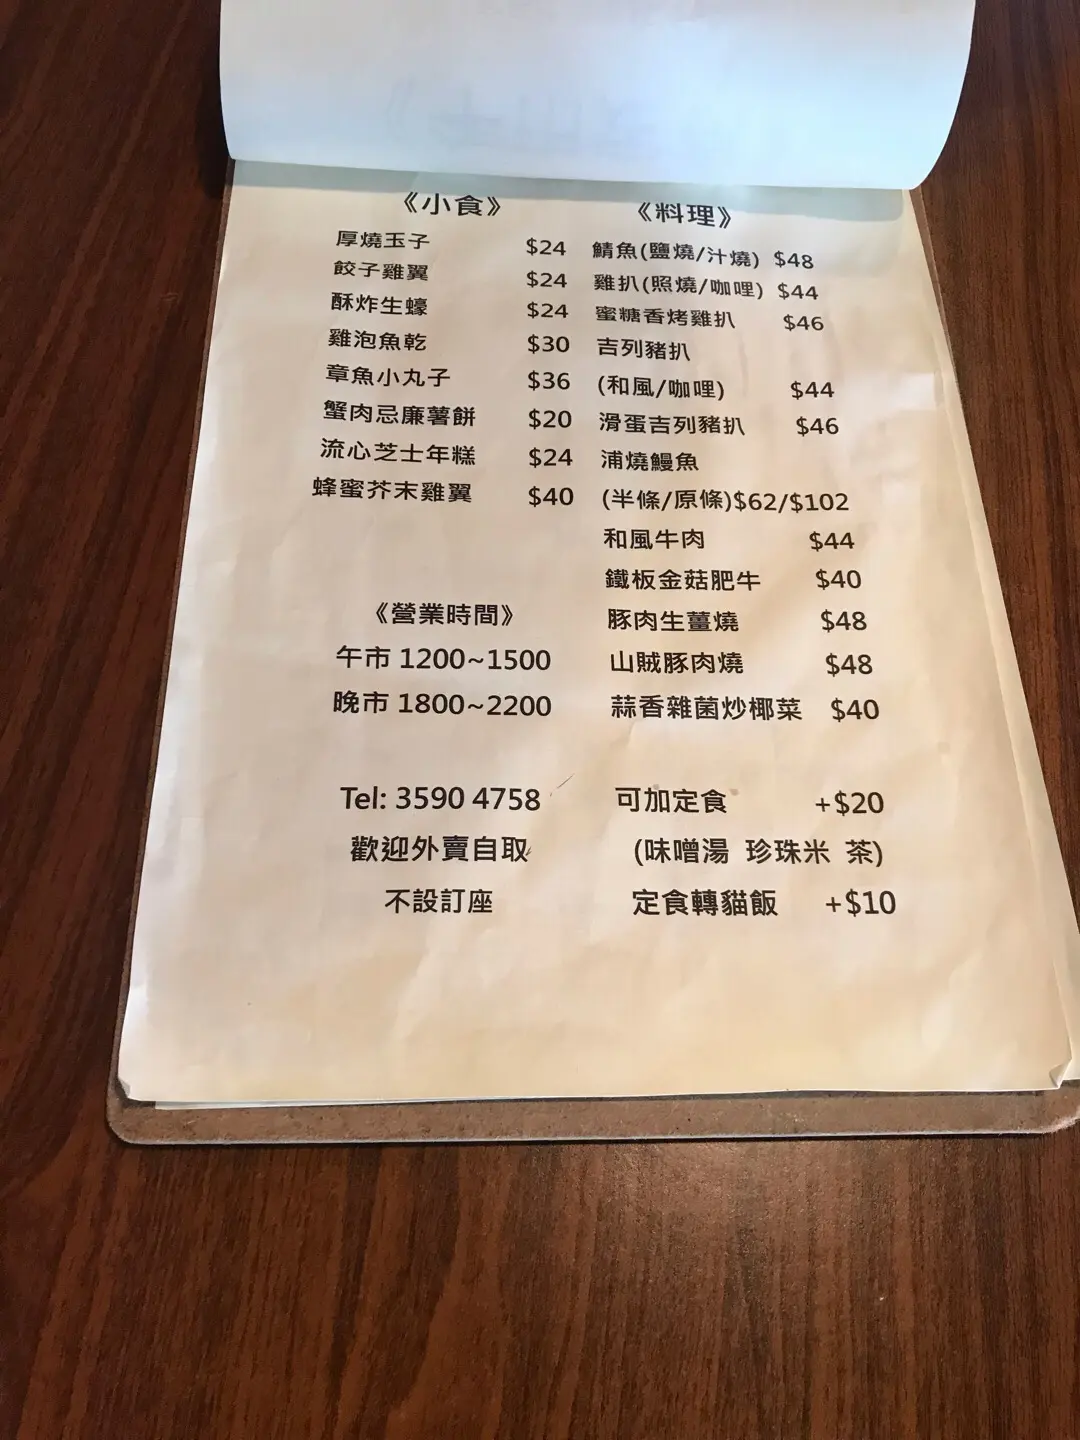 《小食》
厚燒玉子 $24
餃子雞翼 $24
酥炸生蠔 $24
雞泡魚乾 $30
章魚小丸子 $36
蟹肉忌廉薯餅 $20
流心芝士年糕 $24
蜂蜜芥末雞翼 $40
《營業時間》
午市 1200~1500
晚市 1800~2200
Tel: 3590 4758
歡迎外賣自取
不設訂座
《料理》
鯖魚(鹽燒/汁燒) $48
雞扒(照燒/咖哩) $44
蜜糖香烤雞扒 $46
吉列豬扒
(和風/咖哩) $44
滑蛋吉列豬扒 $46
浦燒鰻魚
(半條/原條)$62/$102
和風牛肉 $44
鐵板金菇肥牛 $40
豚肉生薑燒 $48
山賊豚肉燒 $48
蒜香雜菌炒椰菜 $40
可加定食 +$20
(味噌湯 珍珠米 茶)
定食轉貓飯 +$10